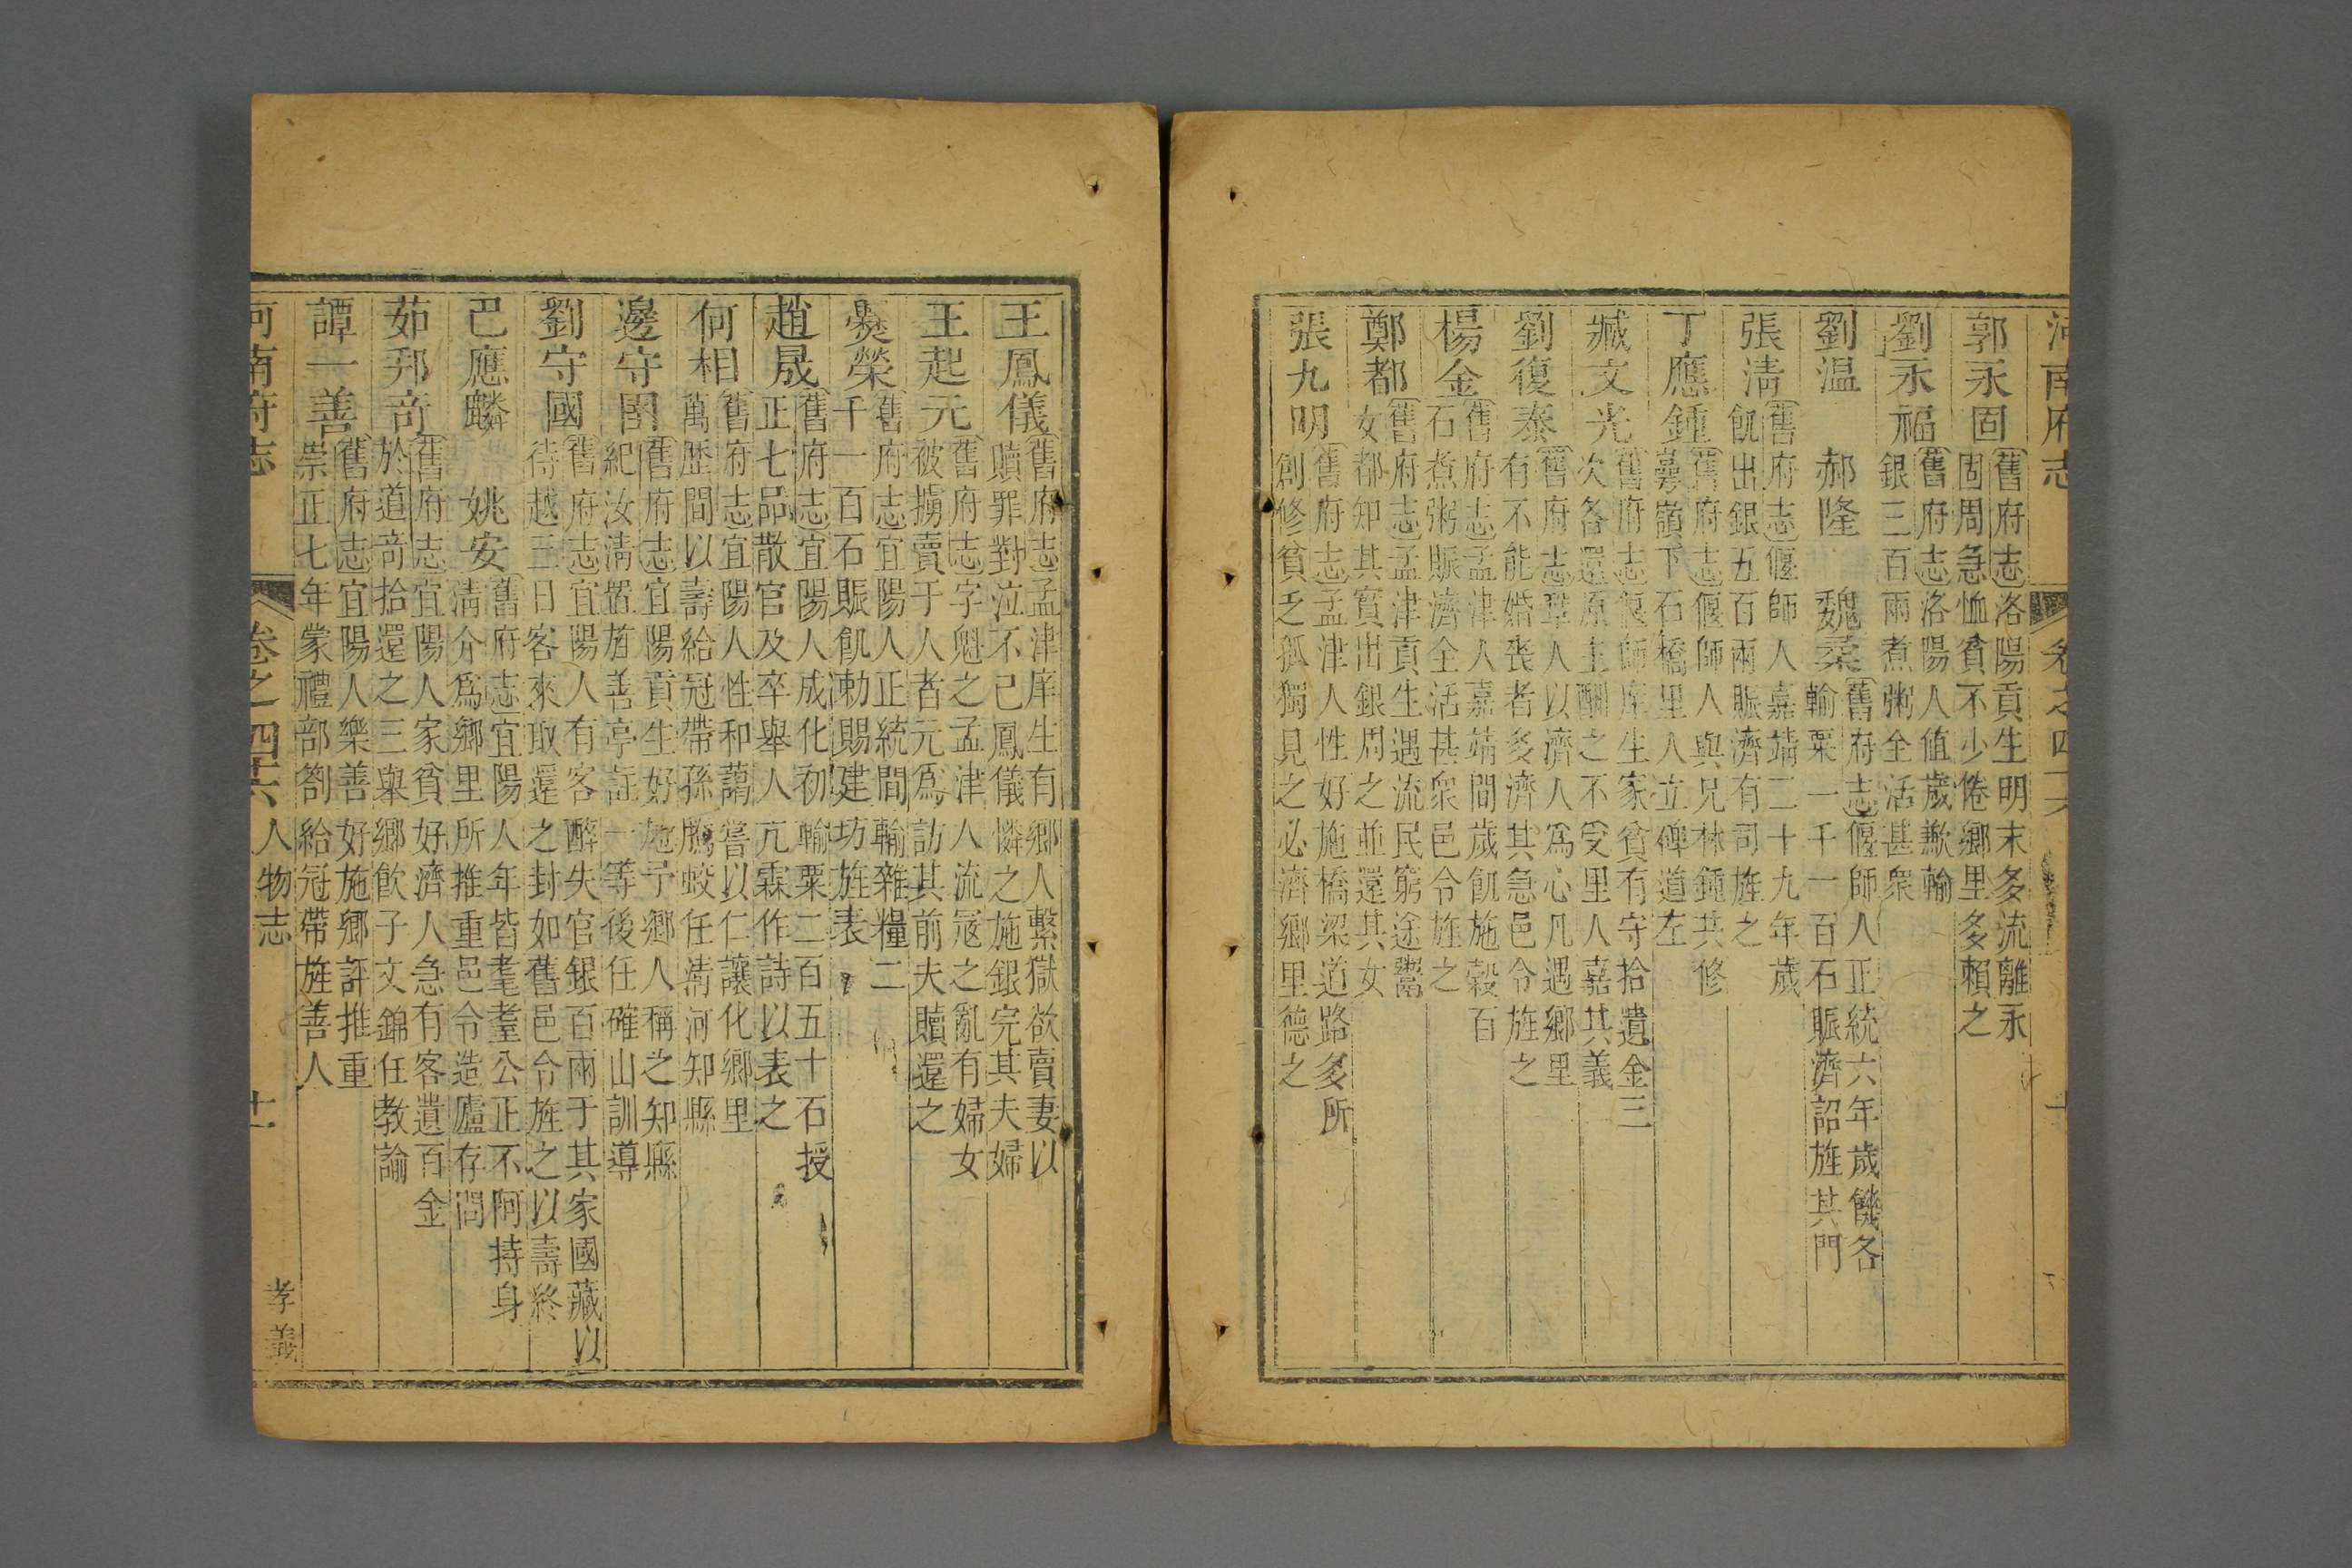 河南府志 卷之四十六
郭永固 舊府志洛陽貢生明末多流離永
固周急恤貧不少倦鄉里多賴之
劉永福 舊府志洛陽人值歲歉輸
銀三百兩煮粥全活甚衆
劉温 郝隆 魏
舊府志偃師人正統六年歲饑各
輸粟一千一百石賑濟詔旌其門
張清 舊府志偃師人嘉靖二十九年歲
飢出銀五百兩賑濟有司旌之
丁應鍾 舊府志偃師人與兄林鍾共修
嶺下石橋里人立碑道左
臧文光 舊府志偃師庠生家貧有守拾遺金三
次各還原主酬之不受里人嘉其義
劉復泰 舊府志鞏人以濟人為心凡遇鄉里
有不能婚喪者多濟其急邑令旌之
楊金 舊府志孟津人嘉靖間歲飢施穀百
石煮粥賑濟全活甚衆邑令旌之
鄭都 舊府志孟津貢生遇流民窮途鬻
女都知其實出銀周之並還其女
張九明 舊府志孟津人性好施橋梁道路多所
創修貧乏孤獨見之必濟鄉里德之
王鳳儀 舊府志孟津庠生有鄉人繫獄欲賣妻以
贖罪對泣不已鳳儀憐之施銀完其夫婦
王起元 舊府志字魁之孟津人流寇之亂有婦女
被擄賣于人者元為訪其前夫贖還之
爨榮 舊府志宜陽人正統間輸雜糧二
千一百石賑飢勅賜建坊旌表
趙晟 舊府志宜陽人成化初輸粟二百五十石授
正七品散官及卒舉人亢霖作詩以表之
何相 舊府志宜陽人性和藹嘗以仁讓化鄉里
萬歷間以壽給冠帶孫騰蛟任清河知縣
邊守固 舊府志宜陽貢生好施予鄉人稱之知縣
紀汝清置旌善亭註一等後任確山訓導
劉守國 舊府志宜陽人有客醉失官銀百兩于其家國藏以
待越三日客來取還之封如舊邑令旌之以壽終
巴應麟 姚安 舊府志宜陽人年皆耄耋公正不阿持身
清介為鄉里所推重邑令造廬存問
茹邦竒 舊府志宜陽人家貧好濟人急有客遺百金
於道竒拾還之三舉鄉飲子文錦任教諭
譚一善 舊府志宜陽人樂善好施鄉評推重
崇正七年蒙禮部劄給冠帶旌善人
河南府志 卷之四十六 人物志 十一 孝義